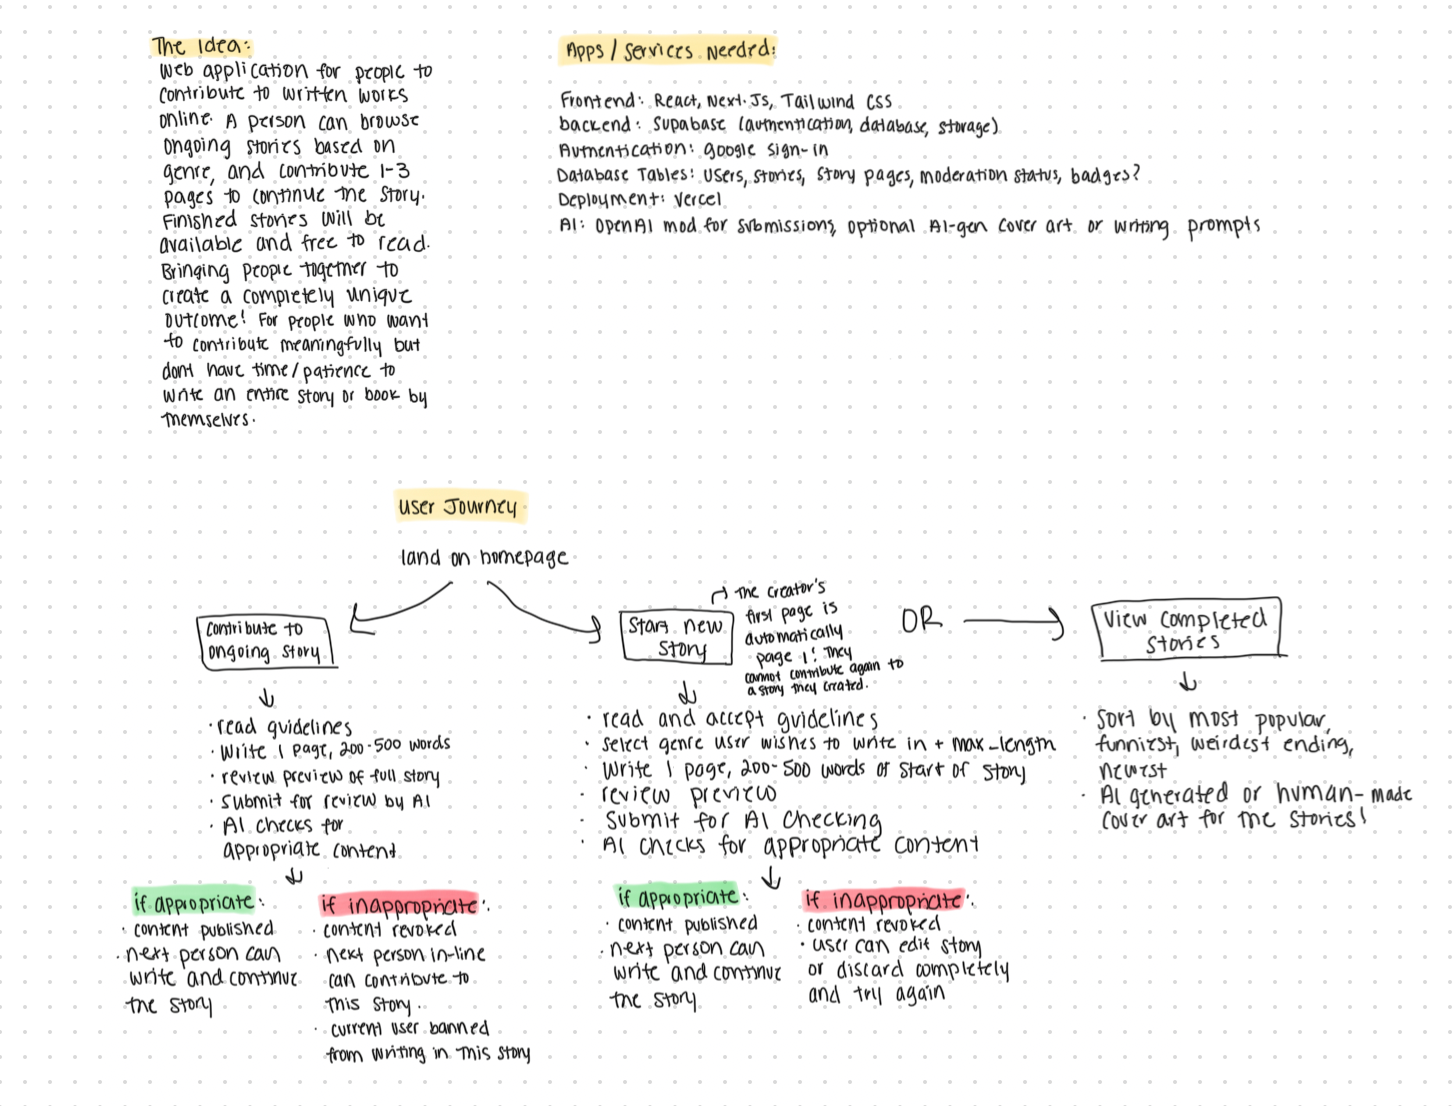 The Idea:
Web application for people to
contribute to written works
online. A person can browse
ongoing stories based on
genre, and contribute 1-3
pages to continue the story.
Finished stories will be
available and free to read.
Bringing people together to
create a completely unique
outcome! For people who want
to contribute meaningfully but
dont have time/patience to
write an entire story or book by
themselves.
Apps / Services Needed:
Frontend: React, Next.Js, Tailwind CSS
backend: Supabase (authentication, database, storage)
Authentication: google sign-in
Database Tables: Users, stories, story pages, moderation status, badges?
Deployment: Vercel
AI: OpenAI mod for submissions, optional AI-gen cover art or writing prompts
User Journey
land on homepage
Contribute to
ongoing story
· read guidelines
· Write 1 page, 200-500 words
· review preview of full story
· Submit for review by AI
· AI checks for
appropriate content
if appropriate:
· content published
· next person can
write and continue
the story
if inappropriate:
· content revoked
· next person in-line
can contribute to
this story.
· current user banned
from writing in this story
Start new
story
The creator's
first page is
automatically
page 1! They
cannot contribute again to
a story they created.
· read and accept guidelines
· select genre user wishes to write in + max-length
· Write 1 page, 200-500 words of start of story
· review preview
· Submit for AI checking
· AI checks for appropriate content
if appropriate:
· content published
· next person can
write and continue
the story
if inappropriate:
· content revoked
· user can edit story
or discard completely
and try again
OR
View completed
stories
· Sort by most popular,
funniest, weirdest ending,
newest
· AI generated or human-made
cover art for the stories!